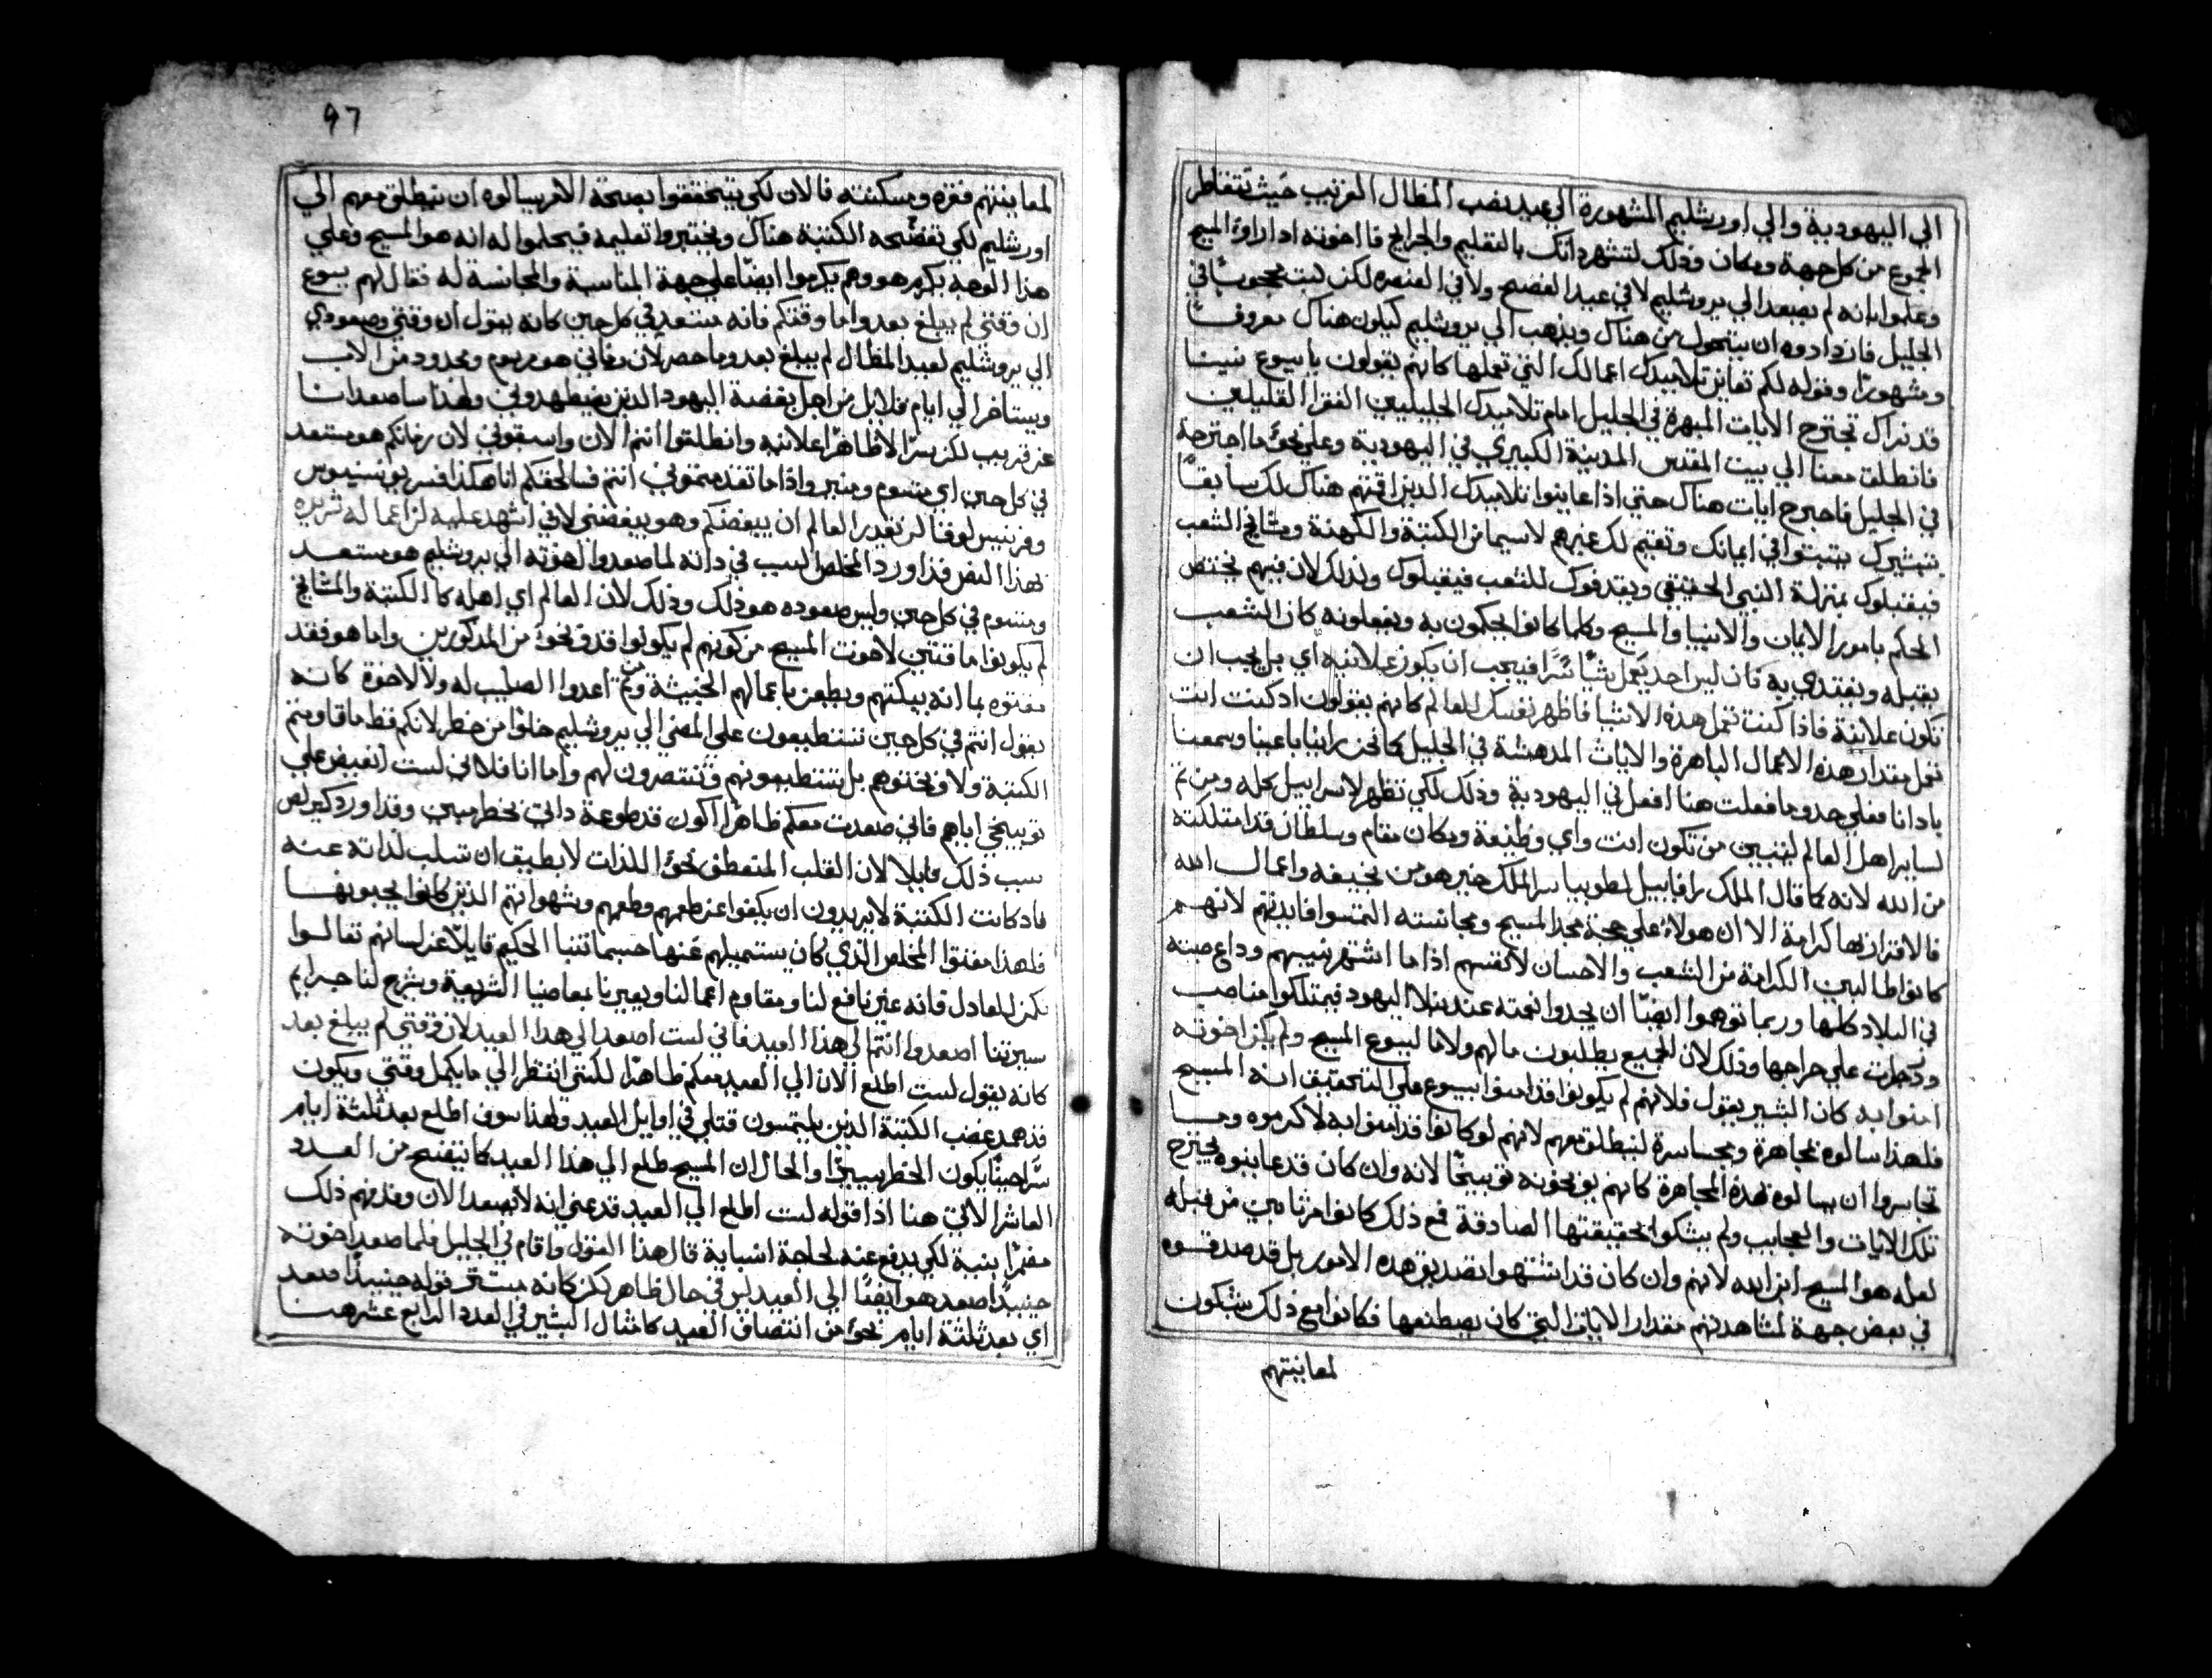 الي اليهودية والي اورشليم المشهورة الي عيد نصب المظال القريب حيث تتقاطر
الجموع من كل جهة ومكان وذلك لتشهر ذاتك بالتعليم والجرايح فااخوته اذ اراوا المسيح
وعلموا بانه لم يصعد الي يروشليم لا في عيد الفصح ولا في العنصره لكن لبث محجوباً في
الجليل فازدادوه ان يتحول من هناك ويذهب الي يروشليم كيلون هناك معروفاً
ومشهوراً وقوله لكم تعاين تلاميدك اعمالك التي تعملها كانهم يقولون يا يسوع نبينا
قد نراك تجترح الايات المبهرة في الجليل امام تلاميدك الجليليين الفقرا القليلين
فانطلق معنا الي بيت المقدس المدينة الكبيري في اليهودية وعلي نحو ما اجترحة
في الجليل فاجترح ايات هناك حتي اذا عاينوا تلاميدك الدين اقتنهم هناك لك سابقاً
بتبشيرك يتبتوا في ايمانك وتقيم لك غيرهم لاسيما من الكتبة والكهنة ومشايخ الشعب
فيقبلوك بمنزلة النبي الحقيقي ويقدفوك للشعب فيقبلوك وذلك لان فيهم يختص
الحكم بامور الايمان والانبيا والمسيح وكلما كانوا يحكمون به ويفعلونه كان الشعب
يقبله ويقتدي به فان ليس احد يعمل شياً سراً فيحب ان يكون علانيه اي بل يجب ان
تكون علانية فاذا كنت تعمل هذه الاشيا فاظهر نفسك للعالم كانهم يقولون اد كنت انت
تعمل مقدار هذه الاعمال الباهرة والايات المدهشة في الجليل كما نحن راينا باعينا وسمعنا
بادانا فعلي حدو ما فعلت هنا افعل في اليهودية وذلك لكي تظهر لاسراييل كله ومن ثم
لساير اهل العالم ليتبين من تكون انت واي وظيفة ومكان مقام وسلطان قد امتلكته
من الله لانه كما قال الملك رافاييل لطوبيا سر الملك خير هو من يخيفه واعمال الله
فالاقرار بها كرامة الا ان هولاء علي حجة مجد المسيح ومجانسته التمسوا فايدتهم لانهم
كانوا طالبين الكرامة من الشعب والاحسان لانفسهم اذا ما اشتهر نسيبهم وداع صيته
في البلاد كلها وربما توهموا ايضاً ان يجدوا نعمته عند ملا اليهود فيمتلكوا مناصب
ودخلت علي خراجها وذلك لان الجميع يطلبون ما لهم ولا ما ليسوع المسيح ولم يكن اخوته
امنوا به كان البشير يقول فلانهم لم يكونوا قد امنوا بيسوع علي التحقيق انه المسيح
فلهذا سالوه بمجاهرة وبمجاسرة لينطلق معهم لانهم لو كانوا قد امنوا به لاكرموه وما
تجاسروا ان يسالوه بهذه المجاهرة كانهم يوبخونه توبيخاً لانه وان كان قد عاينوه يجترح
تلك الايات والعجايب ولم يشكوا بحقيقتها الصادقة فمع ذلك كانوا مرتابين من قبله
لعله هو المسيح ابن الله لانهم وان كان قد اشتهوا تصديق هذه الامور بل قد صدقوه
في بعض جهة لمشاهدتهم مقدار الايات التي كان يصطنعها فكانوا مع ذلك يشكون
لمعاينتهم
97
لمعاينتهم فقره ومسكنته فالان لكي يتحققوا بصحة الامر يسالوه ان ينطلق معهم الي
اورشليم لكي تفضحه الكتبة هناك ويختبروا تعليمه فيحلموا له انه هو المسيح وعلي
هذا الوجه يكرم هو وهم يكرموا ايضاً علي جهة المناسبة والمجانسة له فقال لهم يسوع
ان وقتي لم يبلغ بعد واما وقتكم فانه مستعد في كل حين كانه يقول ان وقتي وصعودي
الي يروشليم لعيد المظال لم يبلغ بعد وما حصر لان زماني هو مرسوم ومحدود من الاب
ويستاخر الي ايام قلايل من اجل بغضة اليهود الذين يضطهدوني ولهذا ساصعد انا
عن قريب لكن سراً لا ظاهراً علانيه وانطلقوا انتم الان واسبقوني لان زمانكم هو مستعد
في كل حين اي مرسوم ومتبر واذا ما تقدمتموني انتم فسالحقكم انا هكذا فسر يوننسيوس
وفرنسيس لوقا لن يقدر العالم ان يبغضكم وهو يبغضني لاني اشهد عليه لان اعماله شريره
بهذا النص قد اورد المخلص السبب في ذاته لما صعدوا لخوته الي يروشليم هو مستعد
ومرسوم في كل حين وليس صعوده هو ذلك وذلك لان العالم اي اهله كالكتبة والمشايخ
لم يكونوا ماقتين لاخوت المسيح من كونهم لم يكونوا قد وبخوا من المدكورين واما هو فقد
مقتوه بما انه يبكتهم ويطعن باعمالهم الخبيثة ومن ثم اعدوا الصليب له ولا لاخوة كانه
يقول انتم في كل حين تستطيعون علي المضي الي يروشليم خلوا من خطر لانكم قط ما قاومتم
الكتبة ولا وبختوهم بل تستطيعونهم وتنتصرون لهم واما انا فلاني لست انقبض علي
توبيخي اياهم فاني صعدت معكم ظاهراً اكون قد طوعة داتي بخطر مبين وقد اورد كيرلص
سبب ذلك قايلا لان القلب المنعطف نحو اللذات لا يطيق ان تسلب لذاته عنه
فاد كانت الكتبة لا يريدون ان يكفوا عن طعهم وطمعهم وشهواتهم الذين كانوا يحبونها
فلهذا مقتوا المخلص الذي كان يستميلهم عنها حسبما تنبا الحكيم قايلاً عن لسانهم تعالوا
نكمن للعادل فانه غير نافع لنا ومقاوم اعمالنا ويعيرنا بمعاصينا الشريعة ويشرح لنا جرايم
سيرتنا اصعدوا انتم الي هذا العيد فاني لست اصعد الي هذا العيد لان وقتي لم يبلغ بعد
كانه يقول لست اطلع الان الي العيد معكم ظاهراً لكنني انتظر الي ما يكمل وقتي ويكون
قد همد غضب الكتبة الذين يلتمسون قتلي في اوايل العيد ولهذا سوف اطلع بعد ثلثة ايام
سراً حيناً يكون الخطر يسيرا والحال ان المسيح طلع الي هذا العيد كما يتضح من العدد
العاشر الاتي هنا اذا قوله لست اطلع الي العيد قد عني انه لا يصعد الان وقد فهم ذلك
مضمراً بنية لكي يدفع عنه لحاجة اسبابة قال هذا القول واقام في الجليل فلما صعد اخوته
حينيداً صعد هو ايضاً الي العيد ليس في حال ظاهر لكن كانه مستتر قوله حينيداً صعد
اي بعد ثلثة ايام نحو من انتصاف العيد كما مثال البشير في العدد الرابع عشر هنا